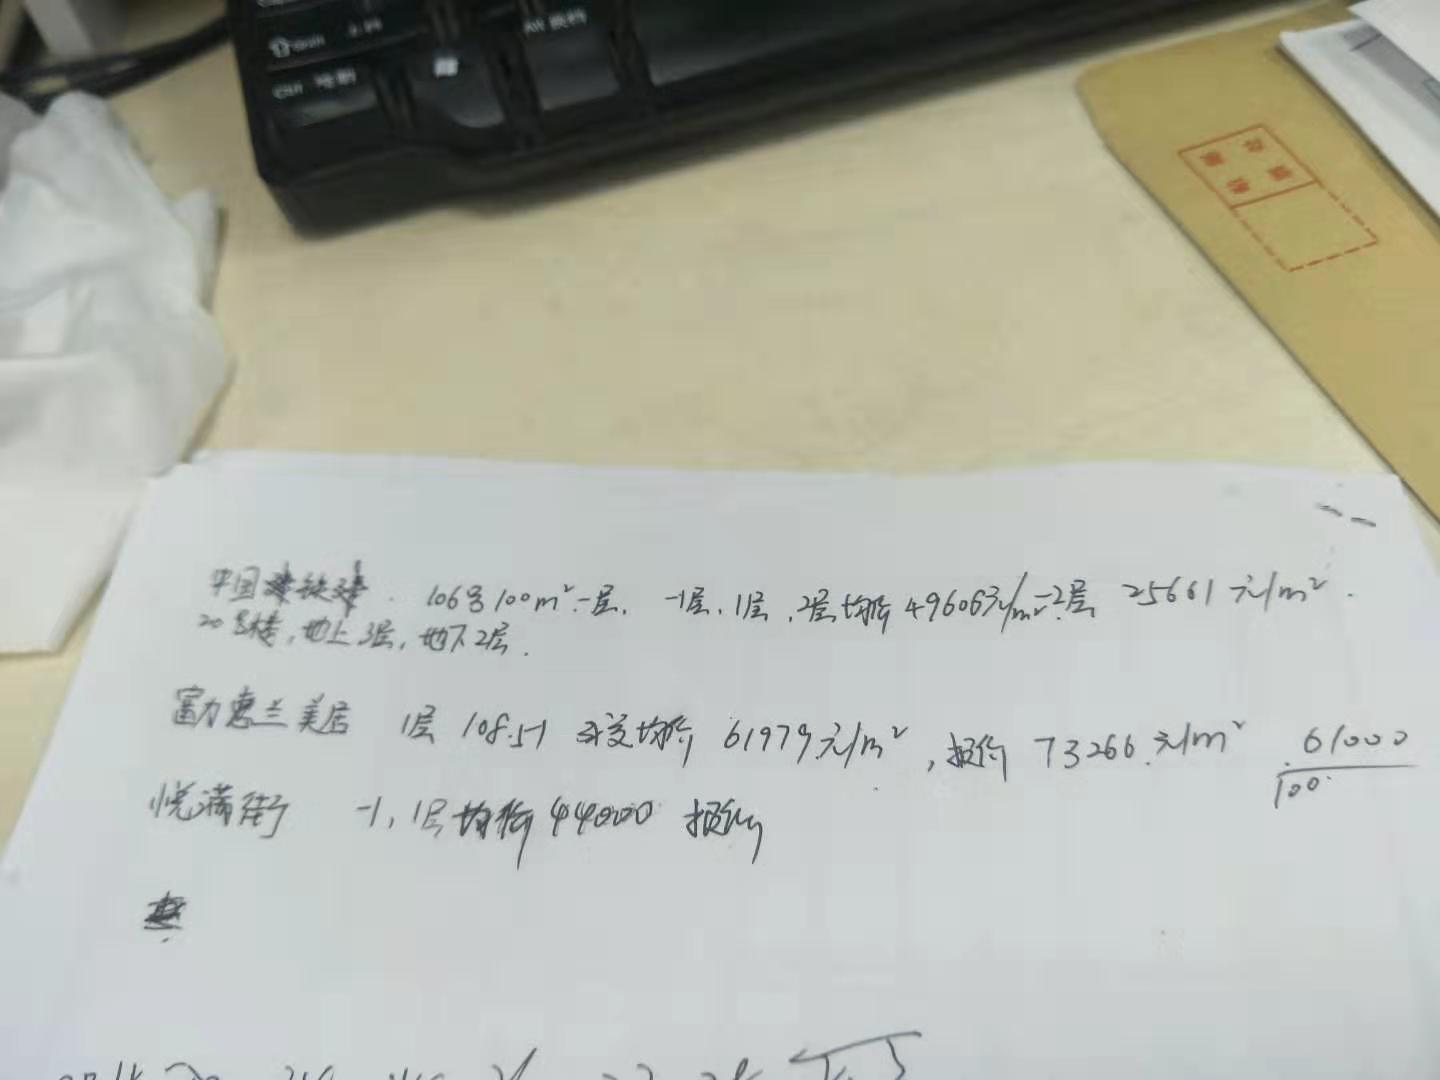 Ctrl 控制
中国铁建 106号100m²一层. -1层、1层、2层均价49606元/m² -2层 25661元/m².
20号楼,地上3层,地下2层.
富力惠兰美居 1层 108.51 成交均价 61979元/m²,报价 73266元/m² 61000
100
悦满街 -1,1层均价44000 报价